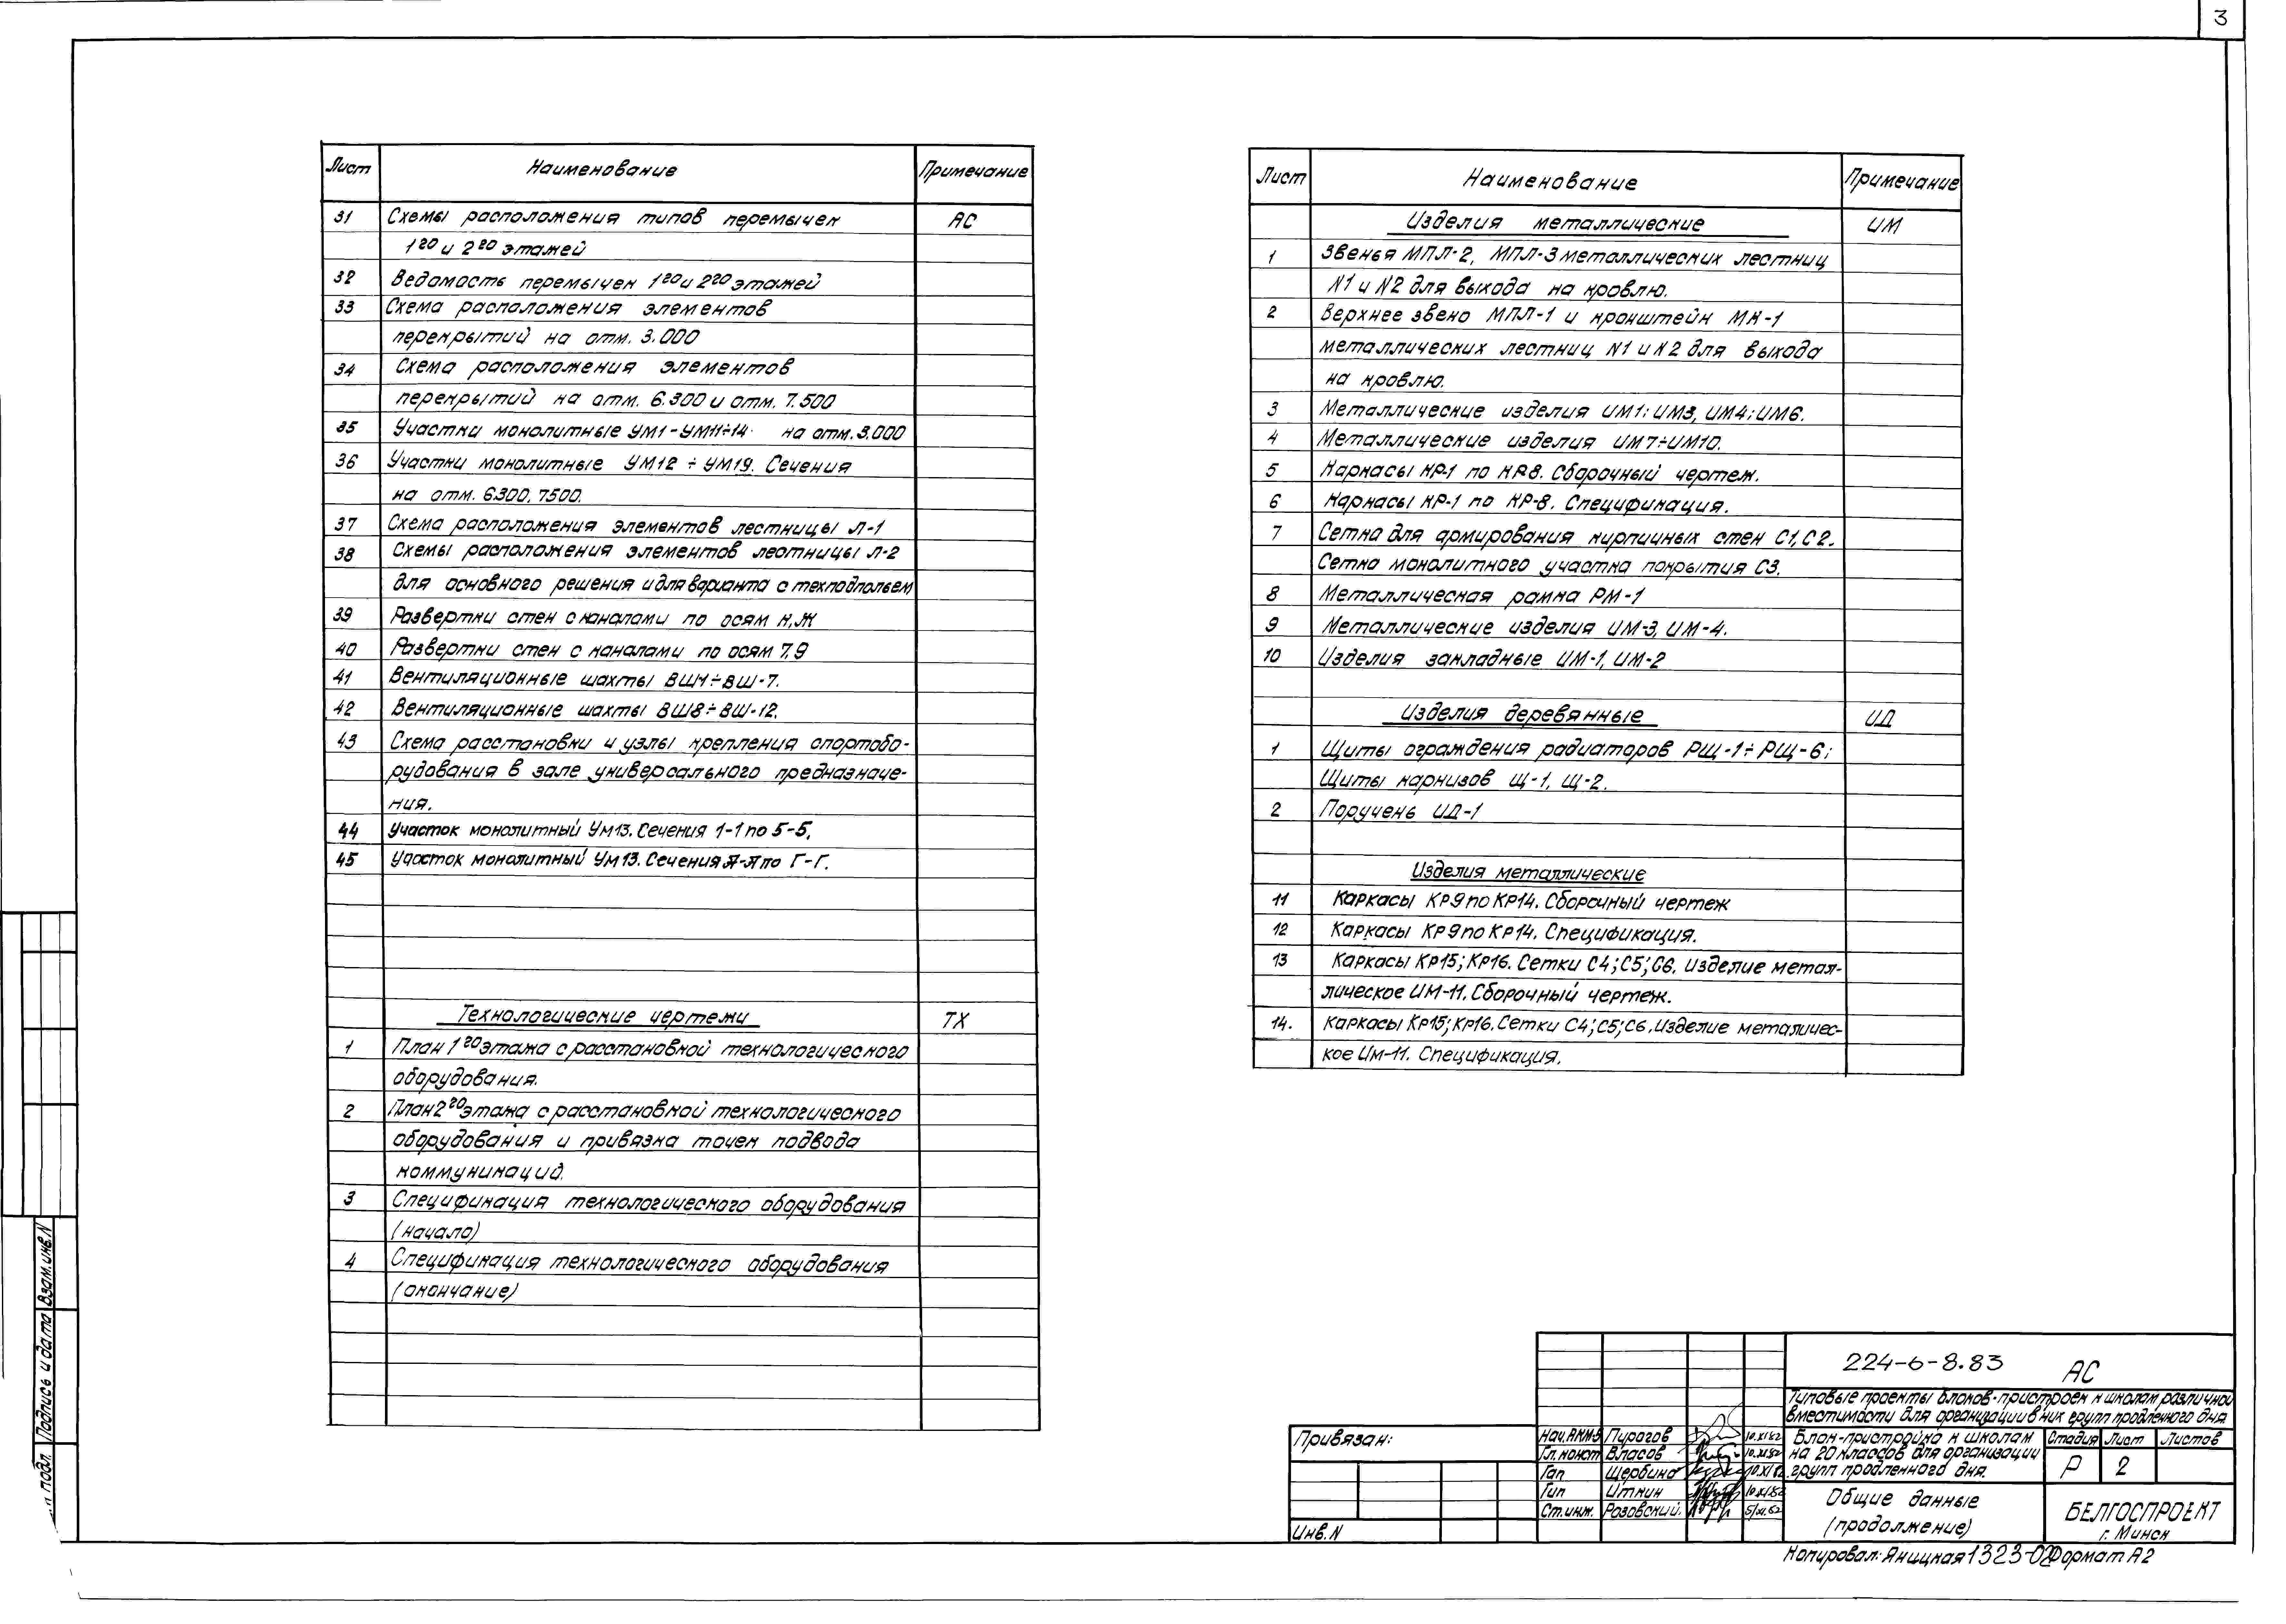 3
Лист Наименование Примечание
31 Схемы расположения типов перемычек АС
1го и 2го этажей
32 Ведомость перемычек 1го и 2го этажей
33 Схема расположения элементов
перекрытий на отм. 3.000
34 Схема расположения элементов
перекрытий на отм. 6.300 и отм. 7.500
35 Участки монолитные УМ1-УМ11÷14 на отм. 3.000
36 Участки монолитные УМ12 ÷ УМ19. Сечения
на отм. 6.300, 7.500.
37 Схема расположения элементов лестницы Л-1
38 Схемы расположения элементов лестницы Л-2
для основного решения и для варианта с техподпольем
39 Развертки стен с каналами по осям К, Ж
40 Развертки стен с каналами по осям 7, 9
41 Вентиляционные шахты ВШ1÷ВШ-7.
42 Вентиляционные шахты ВШ8÷ВШ-12.
43 Схема расстановки и узлы крепления спортобо-
рудования в зале универсального предназначе-
ния.
44 Участок монолитный Ум13. Сечения 1-1 по 5-5.
45 Участок монолитный Ум13. Сечения А-А по Г-Г.
Технологические чертежи ТХ
1 План 1го этажа с расстановкой технологического
оборудования.
2 План 2го этажа с расстановкой технологического
оборудования и привязка точек подвода
коммуникаций.
3 Спецификация технологического оборудования
(начало)
4 Спецификация технологического оборудования
(окончание)
Лист Наименование Примечание
Изделия металлические ИМ
1 Звенья МПЛ-2, МПЛ-3 металлических лестниц
N1 и N2 для выхода на кровлю.
2 Верхнее звено МПЛ-1 и кронштейн МК-1
металлических лестниц N1 и N2 для выхода
на кровлю.
3 Металлические изделия ИМ1÷ИМ3, ИМ4÷ИМ6.
4 Металлические изделия ИМ7÷ИМ10.
5 Каркасы КР-1 по КР-8. Сборочный чертеж.
6 Каркасы КР-1 по КР-8. Спецификация.
7 Сетка для армирования кирпичных стен С1, С2.
Сетка монолитного участка покрытия С3.
8 Металлическая рамка РМ-1
9 Металлические изделия ИМ-3, ИМ-4.
10 Изделия закладные ИМ-1, ИМ-2
Изделия деревянные ИД
1 Щиты ограждения радиаторов РЩ-1÷РЩ-6;
Щиты карнизов Щ-1, Щ-2.
2 Поручень ИД-1
Изделия металлические
11 Каркасы КР9 по КР14. Сборочный чертеж
12 Каркасы КР9 по КР14. Спецификация.
13 Каркасы Кр15; Кр16. Сетки С4; С5; С6. Изделие метал-
лическое ИМ-11. Сборочный чертеж.
14. Каркасы Кр15; Кр16. Сетки С4; С5; С6. Изделие металичес-
кое Им-11. Спецификация.
Взам. инв. N
Подпись и дата
подл.
Привязан:
Инв. N
Нач. АКМ-5 Пирогов 10.XI.82
Гл. конст Власов 10.XI.82
Гап Щербина 10.XI.82
Гип Иткин 10.XI.82
Ст. инж. Розовский. 5/XI.82
224-6-8.83 АС
Типовые проекты блоков-пристроек к школам различной
вместимости для организации в них групп продленного дня
Блок-пристройка к школам
на 20 классов для организации
групп продленного дня.
Стадия Лист Листов
Р 2
Общие данные
(продолжение)
БЕЛГОСПРОЕКТ
г. Минск
Копировал: Яницкая 1323-02 Формат А2